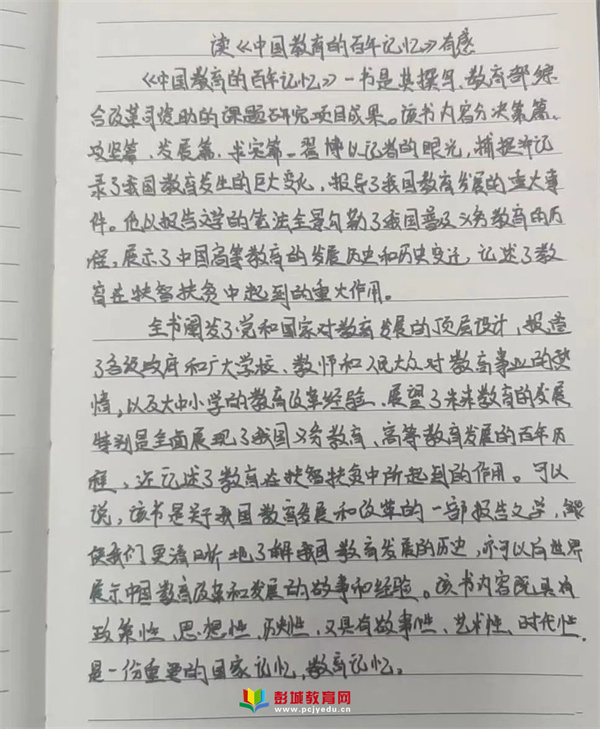 读《中国教育的百年记忆》有感
《中国教育的百年记忆》一书是其撰写、教育部综
合改革司资助的课题研究项目成果。该书内容分决策篇、
攻坚篇、发展篇、求实篇。翟博以记者的眼光，捕捉并记
录了我国教育发生的巨大变化，报导了我国教育发展的重大事
件。他以报告文学的笔法全景勾勒了我国普及义务教育的历
程，展示了中国高等教育的发展历史和历史变迁，记述了教
育在扶智扶贫中起到的重大作用。
全书阐发了党和国家对教育发展的顶层设计，报道
了各级政府和广大学校、教师和人民大众对教育事业的热
情，以及大中小学的教育改革经验、展望了未来教育的发展
特别是全面展现了我国义务教育、高等教育发展的百年历
程，还记述了教育在扶智扶贫中所起到的作用。可以
说，该书是关于我国教育发展和改革的一部报告文学，能
使我们更清晰地了解我国教育发展的历史，亦可以向世界
展示中国教育改革和发展的故事和经验。该书内容既具有
政策性、思想性、历史性、又具有故事性、艺术性、时代性，
是一份重要的国家记忆，教育记忆。
彭城教育网
www.pcjyedu.cn